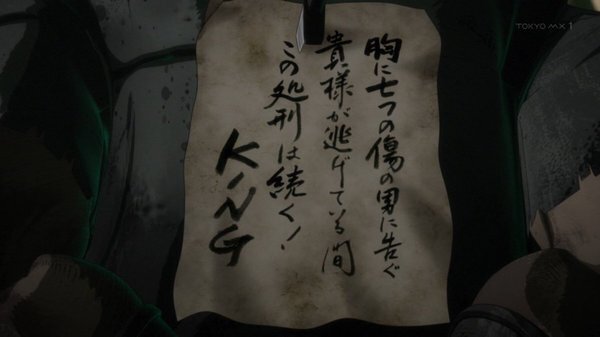 TOKYO MX 1
胸に七つの傷の男に告ぐ
貴様が逃げている間
この処刑は続く!
KING